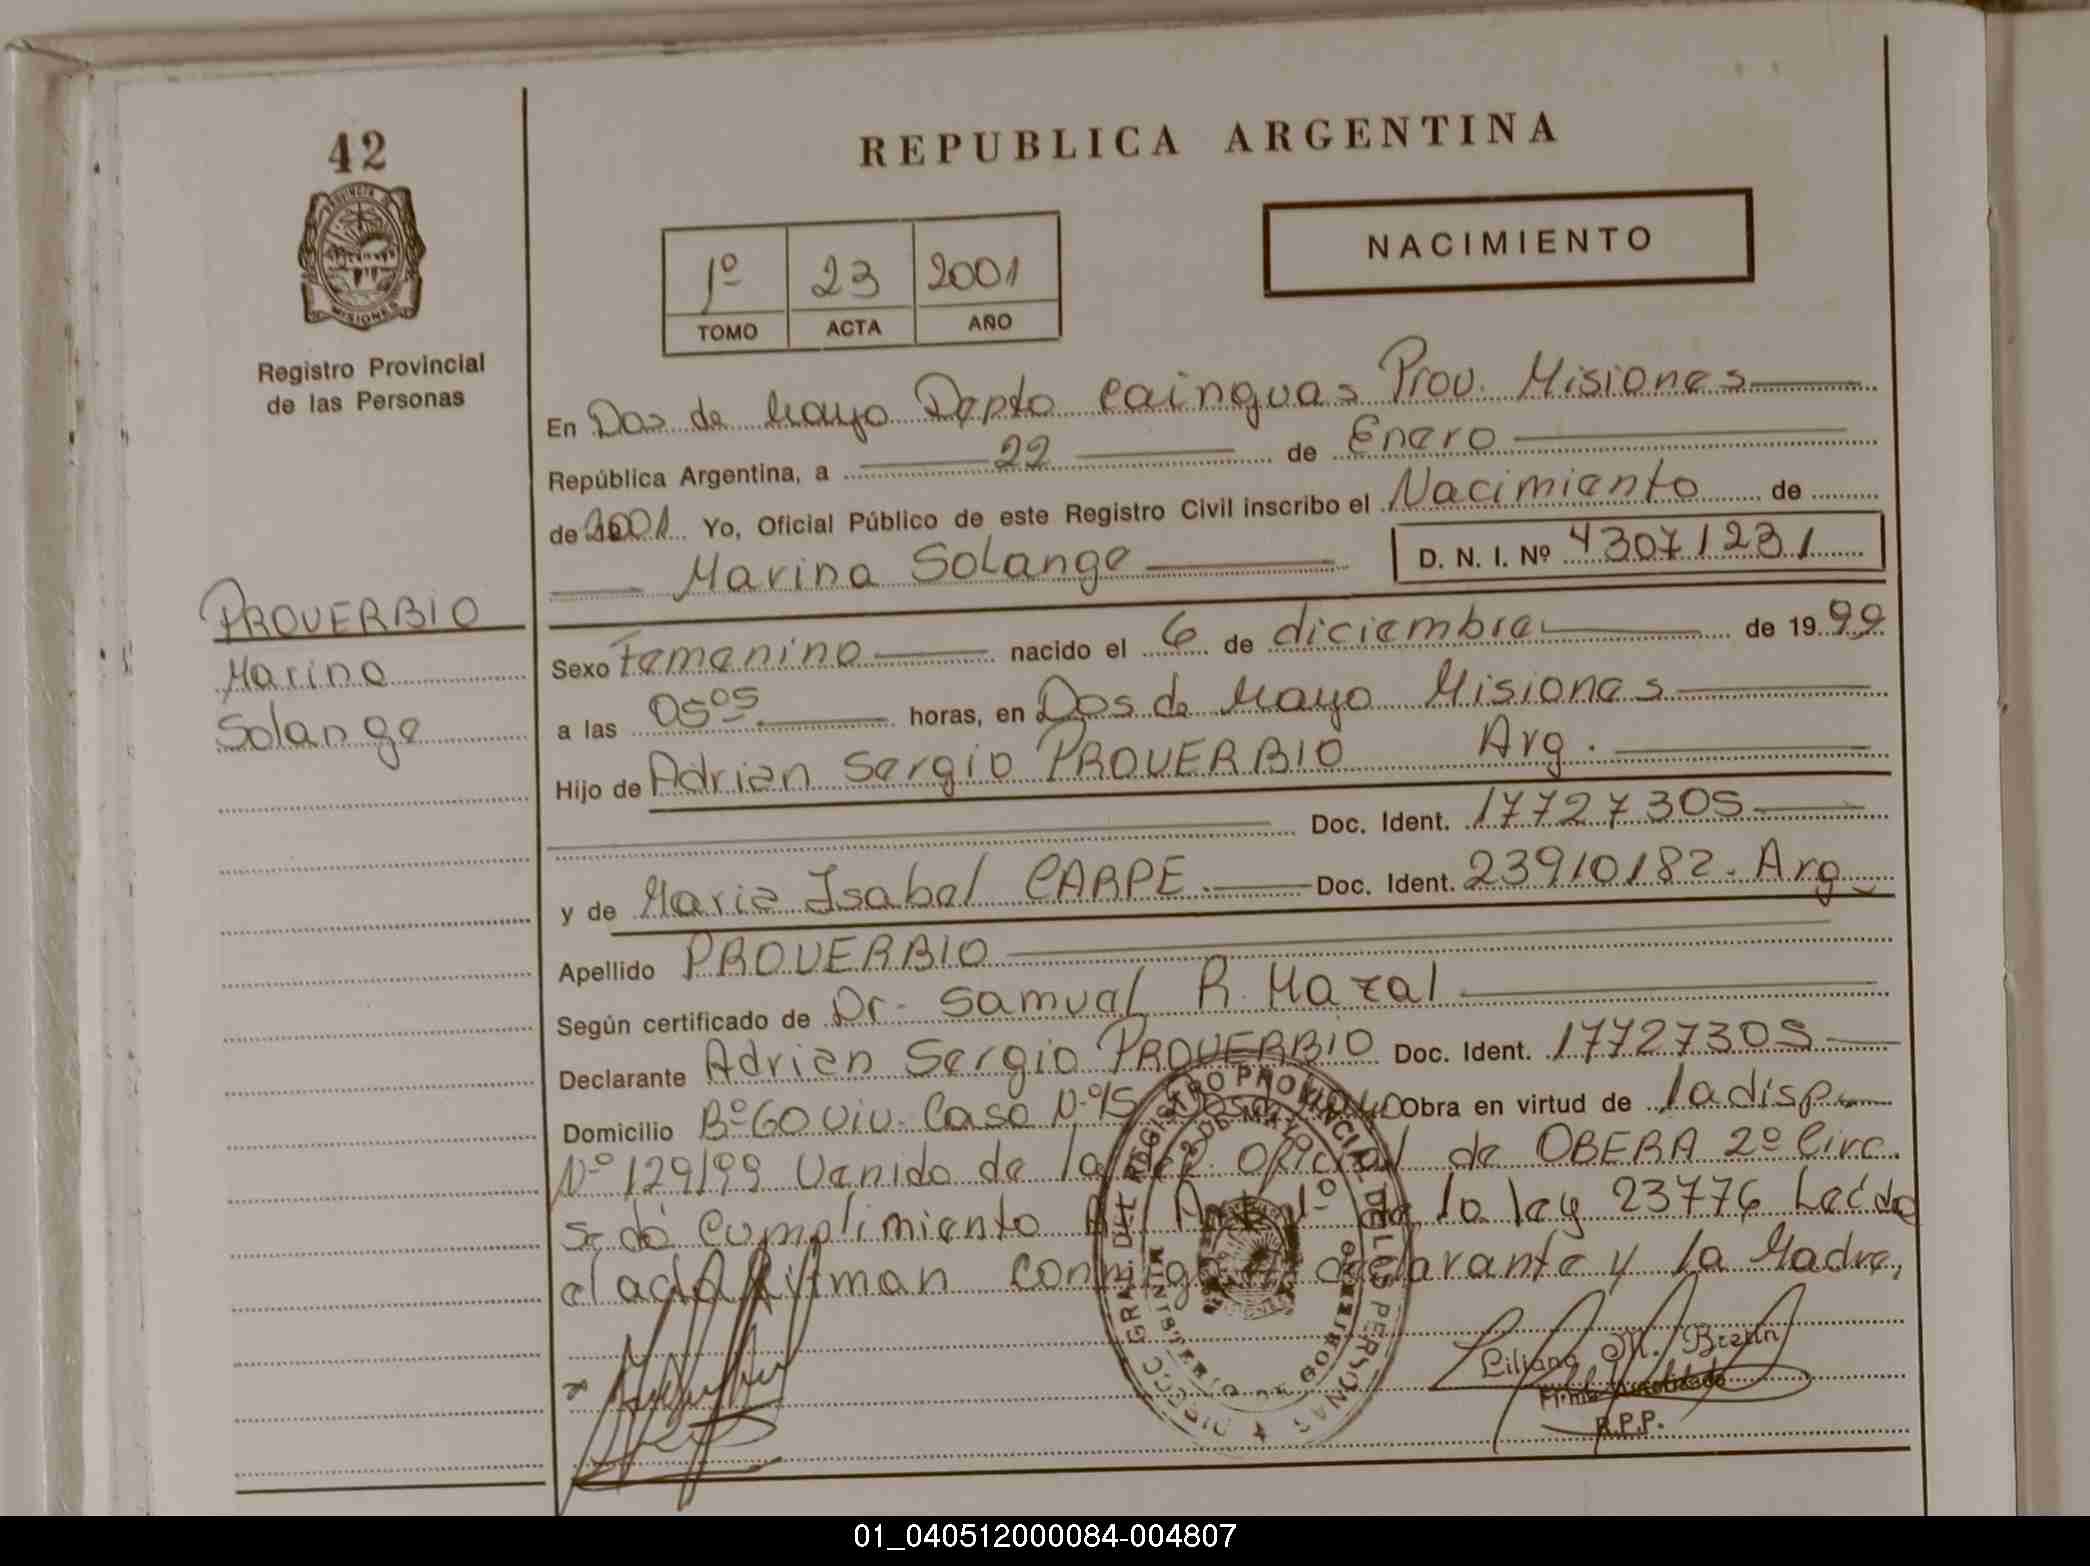 42
REPUBLICA ARGENTINA
PROVINCIA
MISIONES
Registro Provincial
de las Personas
1º 23 2001
TOMO ACTA AÑO
NACIMIENTO
En Dos de Mayo Depto Cainguas Prov. Misiones
República Argentina, a 22 de Enero
de 2001 Yo, Oficial Público de este Registro Civil inscribo el Nacimiento de
Marina Solange D. N. I. Nº 43071231
PROVERBIO
Marina
Solange
Sexo Femenino nacido el 6 de diciembre de 1999
a las 05º⁵ horas, en Dos de Mayo Misiones
Hijo de Adrian Sergio PROVERBIO Arg.
Doc. Ident. 17727305
y de Maria Isabel CARPE. Doc. Ident. 23910182. Arg
Apellido PROVERBIO
Según certificado de Dr. Samual R. Mazal
Declarante Adrian Sergio PROVERBIO Doc. Ident. 17727305
Domicilio Bº 60 Viv. Casa Nº 15 Obra en virtud de la disp.
Nº 129/99 Venido de la de OBERA 2º Circ.
se dá cumplimiento Al Art 1º de la ley 23776 Leído
el acta firman conmigo el declarante y la Madre,
REGISTRO PROVINCIAL DE LAS PERSONAS
2 DE MAYO
MINISTERIO DE GOBIERNO
Liliana M.
Firma Autorizada
R.P.P.
01_040512000084-004807